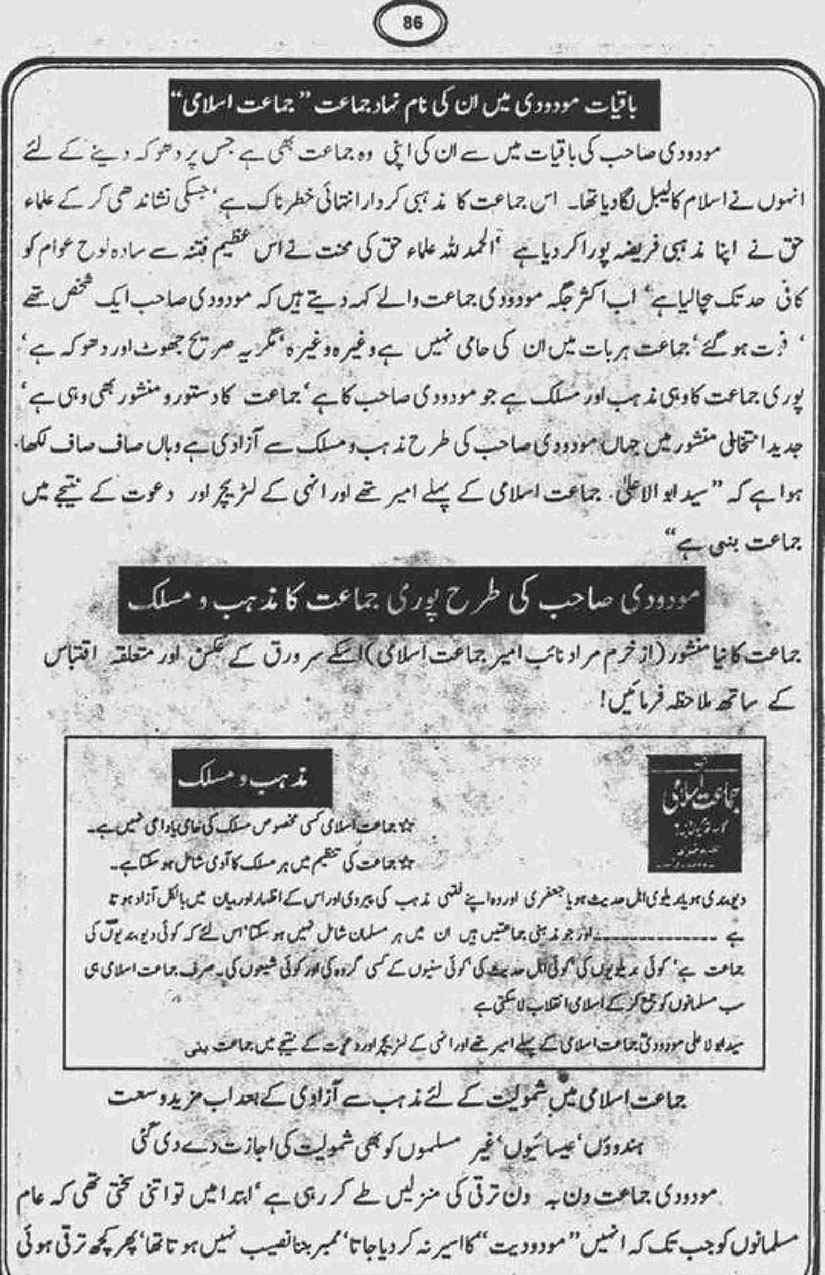 86
باقیات مودودی میں ان کی نام نہاد جماعت "جماعت اسلامی"
مودودی صاحب کی باقیات میں سے ان کی اپنی وہ جماعت بھی ہے جس پر دھوکہ دینے کے لئے
انہوں نے اسلام کا لیبل لگا دیا تھا۔ اس جماعت کا مذہبی کردار انتہائی خطرناک ہے‘ جسکی نشاندھی کر کے علماء
حق نے اپنا مذہبی فریضہ پورا کر دیا ہے ‘ الحمد للہ علماء حق کی محنت نے اس عظیم فتنہ سے سادہ لوح عوام کو
کافی حد تک بچا لیا ہے‘ اب اکثر جگہ مودودی جماعت والے کہہ دیتے ہیں کہ مودودی صاحب ایک شخص تھے
‘ فوت ہو گئے‘ جماعت ہر بات میں ان کی حامی نہیں ہے وغیرہ وغیرہ‘ مگر یہ صریح جھوٹ اور دھوکہ ہے‘
پوری جماعت کا وہی مذہب اور مسلک ہے جو مودودی صاحب کا ہے‘ جماعت کا دستور و منشور بھی وہی ہے‘
جدید انتخابی منشور میں جہاں مودودی صاحب کی طرح مذہب و مسلک سے آزادی ہے وہاں صاف صاف لکھا
ہوا ہے کہ "سید ابو الاعلیٰ جماعت اسلامی کے پہلے امیر تھے اور انہی کے لٹریچر اور دعوت کے نتیجے میں
جماعت بنی ہے"
مودودی صاحب کی طرح پوری جماعت کا مذہب و مسلک
جماعت کا نیا منشور (از خرم مراد نائب امیر جماعت اسلامی) اسکے سرورق کے عکس اور متعلقہ اقتباس
کے ساتھ ملاحظہ فرمائیں!
جماعت اسلامی
مذہب و مسلک
☆ جماعت اسلامی کسی مخصوص مسلک کی حامی یا داعی نہیں ہے۔
☆ جماعت کی تنظیم میں ہر مسلک کا آدمی شامل ہو سکتا ہے۔
دیوبندی ہو یا بریلوی اہل حدیث ہو یا جعفری اور وہ اپنے فقہی مذہب کی پیروی اور اس کے اظہار اور بیان میں بالکل آزاد ہوتا
ہے ---------------اور جو مذہبی جماعتیں ہیں ان میں ہر مسلمان شامل نہیں ہو سکتا‘ اس لئے کہ کوئی دیوبندیوں کی
جماعت ہے‘ کوئی بریلویوں کی‘ کوئی اہل حدیث کی‘ کوئی سنیوں کے کسی گروہ کی اور کوئی شیعوں کی۔ صرف جماعت اسلامی ہی
سب مسلمانوں کو جمع کر کے اسلامی انقلاب لا سکتی ہے
سید ابو لا علی مودودیؒ جماعت اسلامی کے پہلے امیر تھے اور انہی کے لٹریچر اور دعوت کے نتیجے میں جماعت بنی
جماعت اسلامی میں شمولیت کے لئے مذہب سے آزادی کے بعد اب مزید وسعت
ہندوؤں‘ عیسائیوں‘ غیر مسلموں کو بھی شمولیت کی اجازت دے دی گئی
مودودی جماعت دن بہ دن ترقی کی منزلیں طے کر رہی ہے‘ ابتدا میں تو اتنی سختی تھی کہ عام
مسلمانوں کو جب تک کہ انہیں "مودودیت" کا اسیر نہ کر دیا جاتا‘ ممبر بننا نصیب نہیں ہوتا تھا‘ پھر کچھ ترقی ہوئی